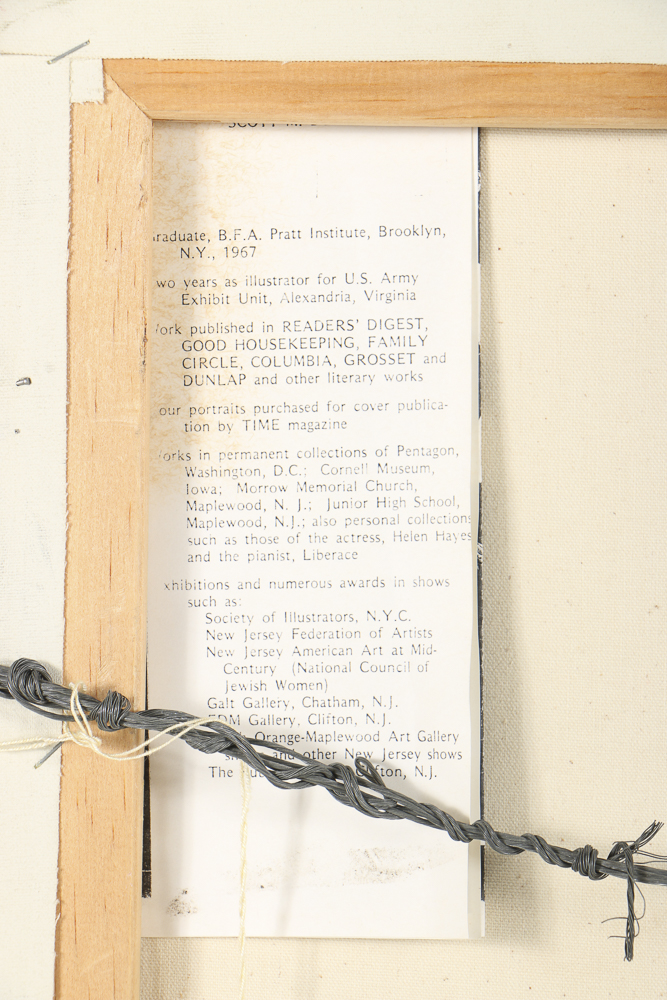 raduate, B.F.A. Pratt Institute, Brooklyn,
N.Y., 1967
wo years as illustrator for U.S. Army
Exhibit Unit, Alexandria, Virginia
ork published in READERS' DIGEST,
GOOD HOUSEKEEPING, FAMILY
CIRCLE, COLUMBIA, GROSSET and
DUNLAP and other literary works
our portraits purchased for cover publica-
tion by TIME magazine
orks in permanent collections of Pentagon,
Washington, D.C.; Cornell Museum,
Iowa; Morrow Memorial Church,
Maplewood, N. J.; Junior High School,
Maplewood, N.J.; also personal collections
such as those of the actress, Helen Hayes
and the pianist, Liberace
xhibitions and numerous awards in shows
such as:
Society of Illustrators, N.Y.C.
New Jersey Federation of Artists
New Jersey American Art at Mid-
Century (National Council of
Jewish Women)
Galt Gallery, Chatham, N.J.
Gallery, Clifton, N.J.
Orange-Maplewood Art Gallery
and other New Jersey shows
The Clifton, N.J.